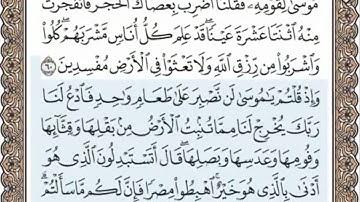 مُوسَىٰ لِقَوْمِهِۦ فَقُلْنَا ٱضْرِب بِّعَصَاكَ ٱلْحَجَرَ ۖ فَٱنفَجَرَتْ
مِنْهُ ٱثْنَتَا عَشْرَةَ عَيْنًا ۖ قَدْ عَلِمَ كُلُّ أُنَاسٍ مَّشْرَبَهُمْ ۖ كُلُوا۟
وَٱشْرَبُوا۟ مِن رِّزْقِ ٱللَّهِ وَلَا تَعْثَوْا۟ فِى ٱلْأَرْضِ مُفْسِدِينَ ٦٠
وَإِذْ قُلْتُمْ يَٰمُوسَىٰ لَن نَّصْبِرَ عَلَىٰ طَعَامٍ وَٰحِدٍ فَٱدْعُ لَنَا
رَبَّكَ يُخْرِجْ لَنَا مِمَّا تُنۢبِتُ ٱلْأَرْضُ مِنۢ بَقْلِهَا وَقِثَّآئِهَا
وَفُومِهَا وَعَدَسِهَا وَبَصَلِهَا ۖ قَالَ أَتَسْتَبْدِلُونَ ٱلَّذِى هُوَ
أَدْنَىٰ بِٱلَّذِى هُوَ خَيْرٌ ۚ ٱهْبِطُوا۟ مِصْرًا فَإِنَّ لَكُم مَّا سَأَلْتُمْ ۗ